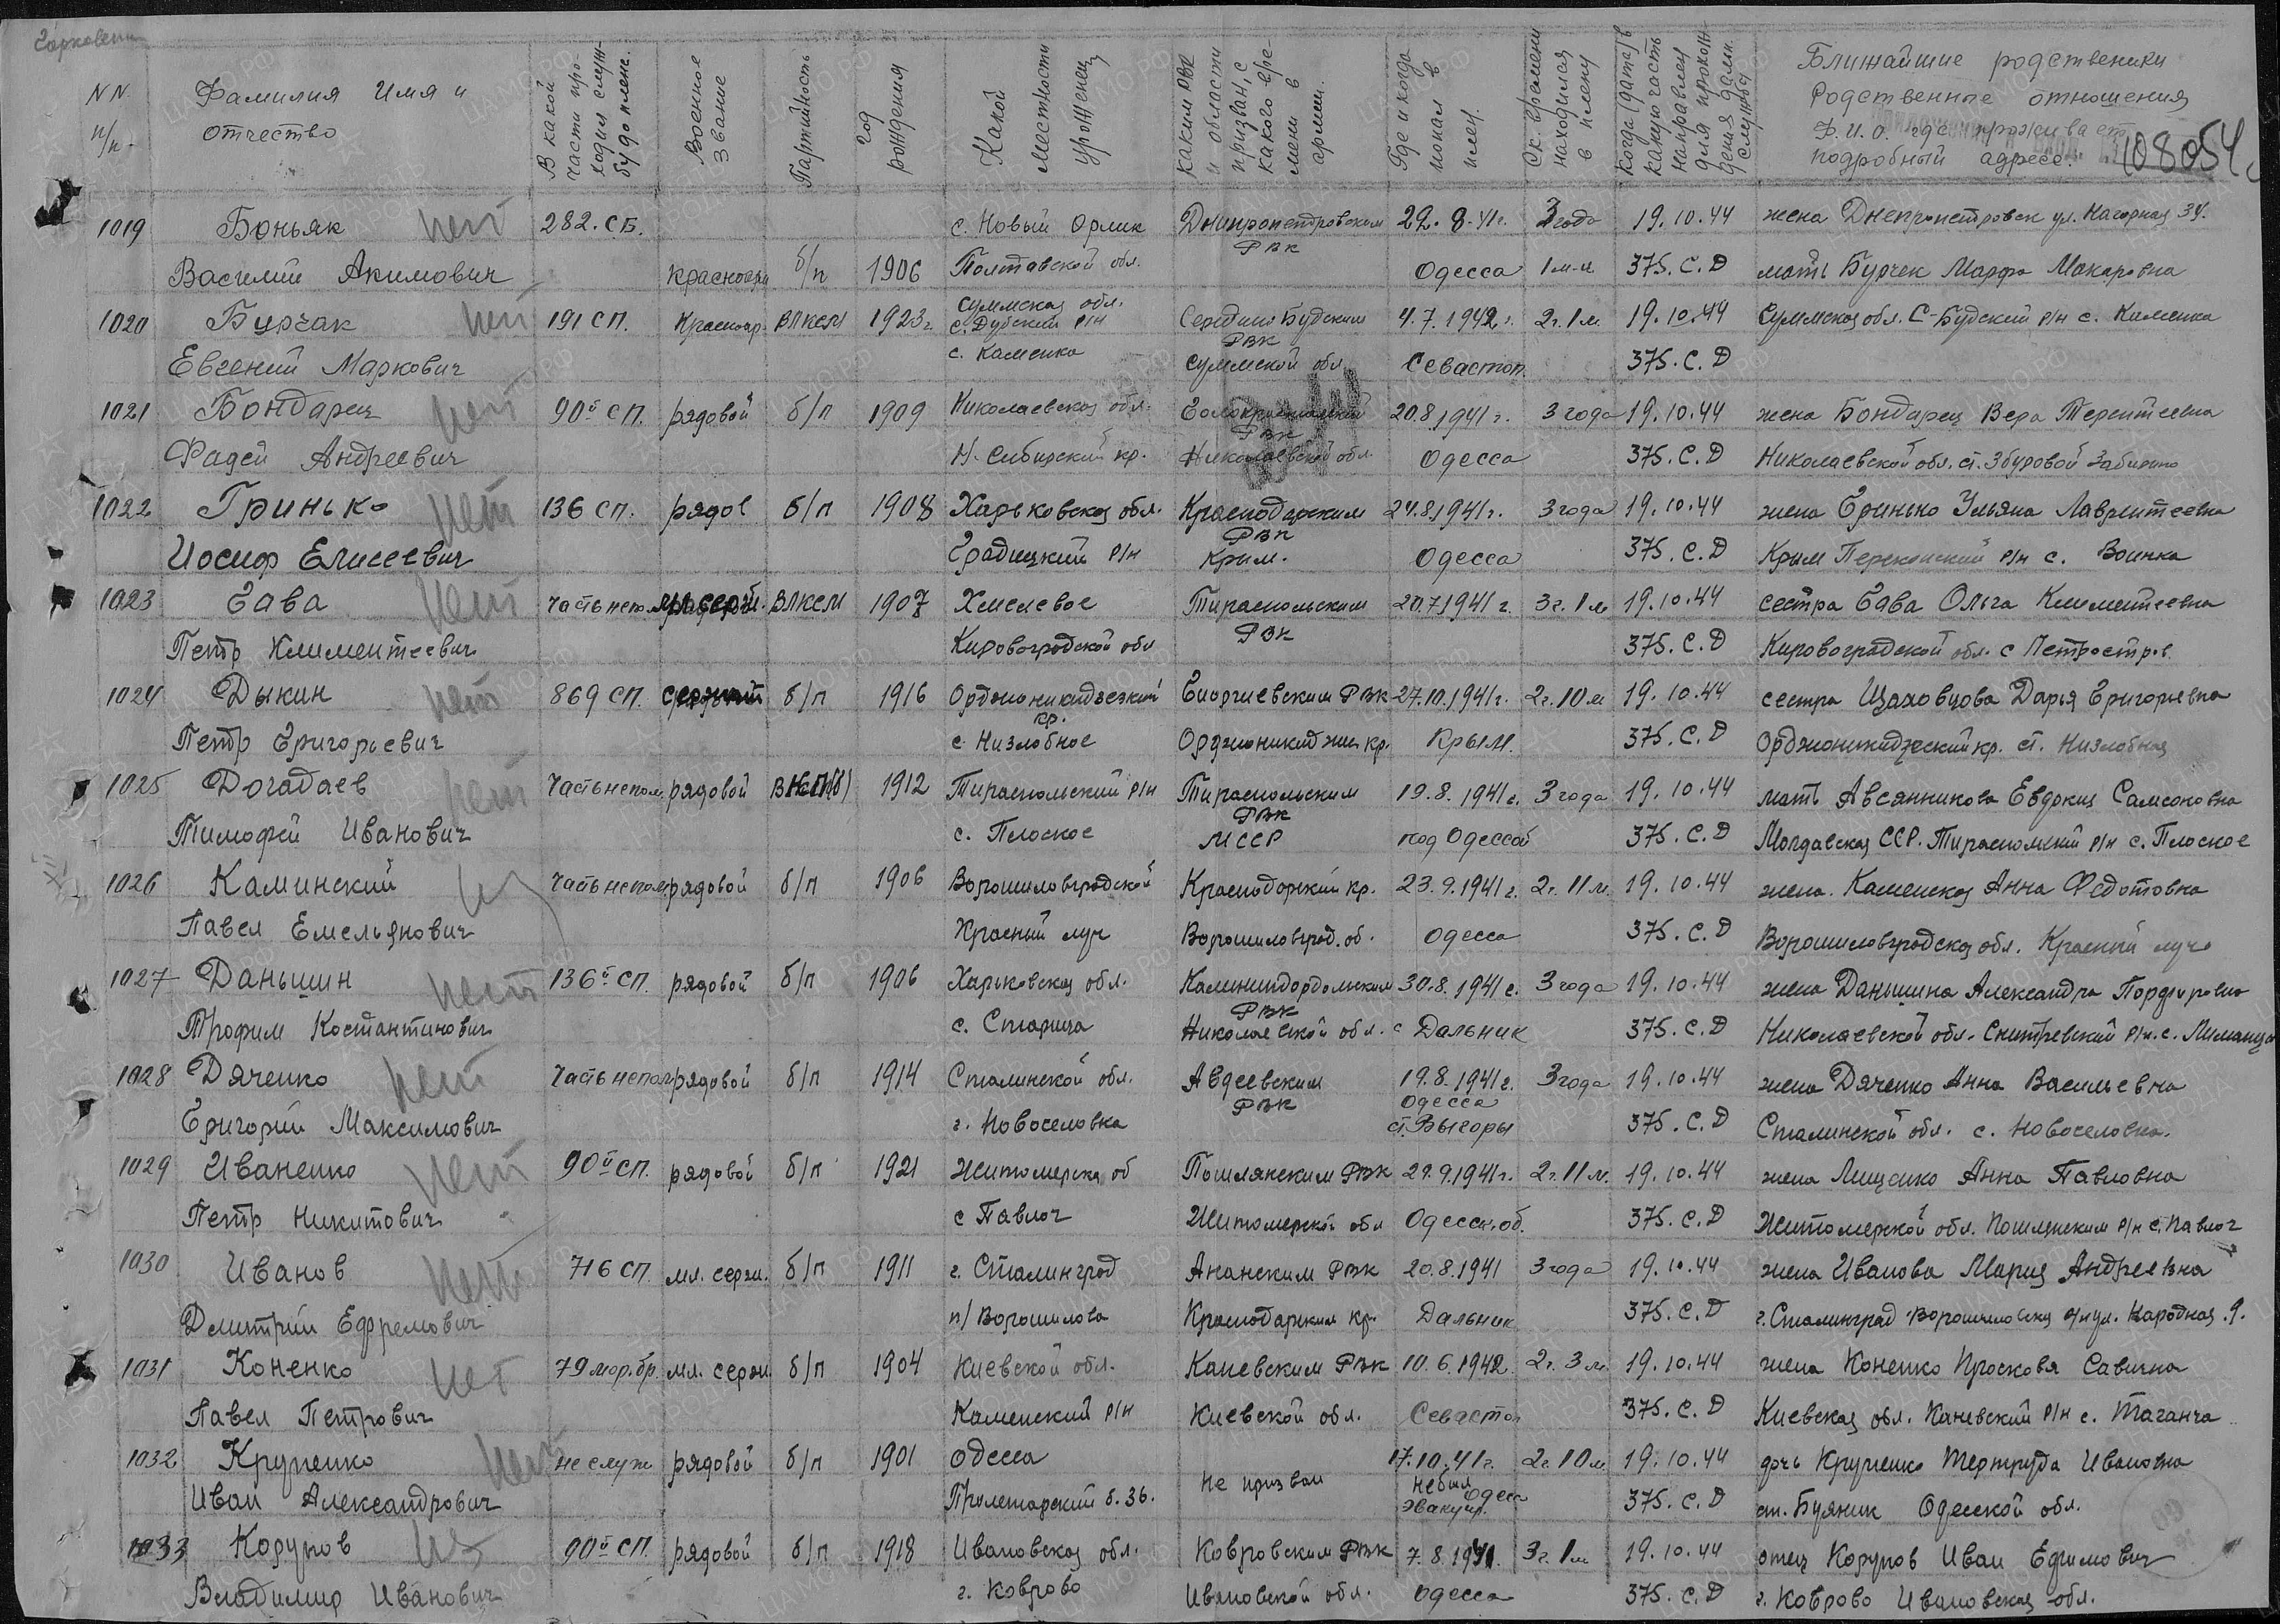 NN п/п
Фамилия Имя и отчество
В какой части проходил службу до плена.
Военное звание
Партийность
Год рождения
Какой местности уроженец
Каким РВК и области призван, с какого времени в армии.
Где и когда попал в плен.
Ск. времени находился в плену
Когда (дата) в какую часть направлен для прохождения дальн. службы
Ближайшие родственики
Родственные отношения
Ф.И.О. где проживает
подробный адрес.
108054
1019 Боньяк нет 282. СБ. с. Новый Орлик Днипропетровским РВК 22. 8. 41г. 3 года 19.10.44 жена Днепропетровск ул. Нагорная 34.
Василий Акимович красноар б/п 1906 Полтавской обл. Одесса 1 м-ц 375. С.Д мать Бурчек Марфа Макаровна
1020 Бурчак нет 191 СП. Красноар. ВЛКСМ 1923г. Суммская обл. с. Дубский р/н Середино Будским РВК 4.7.1942г. 2г. 1м. 19.10.44 Суммская обл. С-Будский р/н с. Каменка
Евгений Маркович с. Каменка Суммской обл. Севастоп. 375. С.Д
1021 Бондарец нет 90й СП. рядовой б/п 1909 Николаевская обл. РВК 20.8.1941г. 3 года 19.10.44 жена Бондарец Вера Терентеевна
Фадей Андреевич Н. Сибирский кр. Николаевской обл. Одесса 375. С.Д Николаевской обл. с.
1022 Гринько нет 136 СП. рядов б/п 1908 Харьковская обл. Краснодарским РВК 24.8.1941г. 3 года 19.10.44 жена Гринько Ульяна Лаврентеевна
Иосиф Елисеевич Градицкий р/н Крым. Одесса 375. С.Д Крым Перекопский р/н с. Воинка
1023 Гава нет Часть непом. мл. серж. ВЛКСМ 1907 Хмелевое Тираспольским РВК 20.7.1941г. 3г. 1м 19.10.44 сестра Гава Ольга Климентеевна
Петр Климентеевич Кировоградской обл 375. С.Д Кировоградской обл. с Петростров.
1024 Дыкин нет 869 СП. б/п 1916 Орджоникидзеский кр. Георгиевским РВК 27.10.1941г. 2г. 10м 19.10.44 сестра Цаховцова Дарья Григорьевна
Петр Григорьевич с. Низлобное Орджоникиджи. кр. Крым. 375. С.Д Орджоникидзеский кр. ст. Низлобная
1025 Догадаев нет Часть непом. рядовой ВКП(б) 1912 Тираспомский р/н Тираспольским РВК 19.8.1941г. 3 года 19.10.44 мать Авсянникова Евдокия Самсоновна
Тимофей Иванович с. Плоское МССР под Одессой 375. С.Д Молдавская ССР. Тираспомский р/н с. Плоское
1026 Каминский Часть непом рядовой б/п 1906 Ворошиловградской Краснодорский кр. 23.9.1941г. 2г. 11м. 19.10.44 жена. Каменская Анна Федотовна
Павел Емельянович Красный луч Ворошиловград. об. Одесса 375. С.Д Ворошиловградская обл. Красный луч
1027 Даньшин нет 136й СП. рядовой б/п 1906 Харьковская обл. Калининдордольским РВК 30.8.1941г. 3 года 19.10.44 жена Даньшина Александра Порфировна
Трофим Костантинович с. Старица Николаевской обл. с Дальник 375. С.Д Николаевской обл. р/н. с. Лиманцы
1028 Дяченко нет Часть непом рядовой б/п 1914 Сталинской обл. Авдеевским РВК 19.8.1941г. Одесса 3 года 19.10.44 жена Дяченко Анна Васильевна
Григорий Максимович г. Новоселовка ст. Выгоры 375. С.Д Сталинской обл. с. Новоселовка.
1029 Иваненко нет 90й СП. рядовой б/п 1921 Житомерска об Пошлянским РВК 29.9.1941г. 2г. 11м. 19.10.44 жена Лищенко Анна Павловна
Петр Никитович с Павлоч Житомерской обл Одесск. об. 375. С.Д Житомерской обл. Пошлянским р/н с. Павлоч
1030 Иванов нет 716 СП. мл. серж. б/п 1911 г. Сталинград Ананским РВК 20.8.1941 3 года 19.10.44 жена Иванова Мария Андреевна
Дмитрий Ефремович п/Ворошилова Краснодарским кр. Дальник 375. С.Д г. Сталинград Ворошиловский р/н ул. Народная 9.
1031 Коненко нет 79 мор. бр. мл. серж. б/п 1904 Киевской обл. Каневским РВК 10.6.1942. 2г. 3м. 19.10.44 жена Коненко Просковя Савична
Павел Петрович Каменский р/н Киевской обл. Севастоп 375. С.Д Киевская обл. Каневский р/н с. Таганча
1032 Крупенко нет не служ рядовой б/п 1901 Одесса Не призван 17.10.41г. 2г. 10м 19.10.44 дочь Крупенко Тертруда Ивановна
Иван Александрович Пролетарский б. 36. небыл эвакуир. Одесс 375. С.Д ст. Буяник Одесской обл.
1033 Корупов 90й СП. рядовой б/п 1918 Ивановская обл. Ковровским РВК 7.8.1941. 3г. 1м 19.10.44 отец Корупов Иван Ефимович
Владимир Иванович г. Коврово Ивановской обл. Одесса 375. С.Д г. Коврово Ивановская обл.